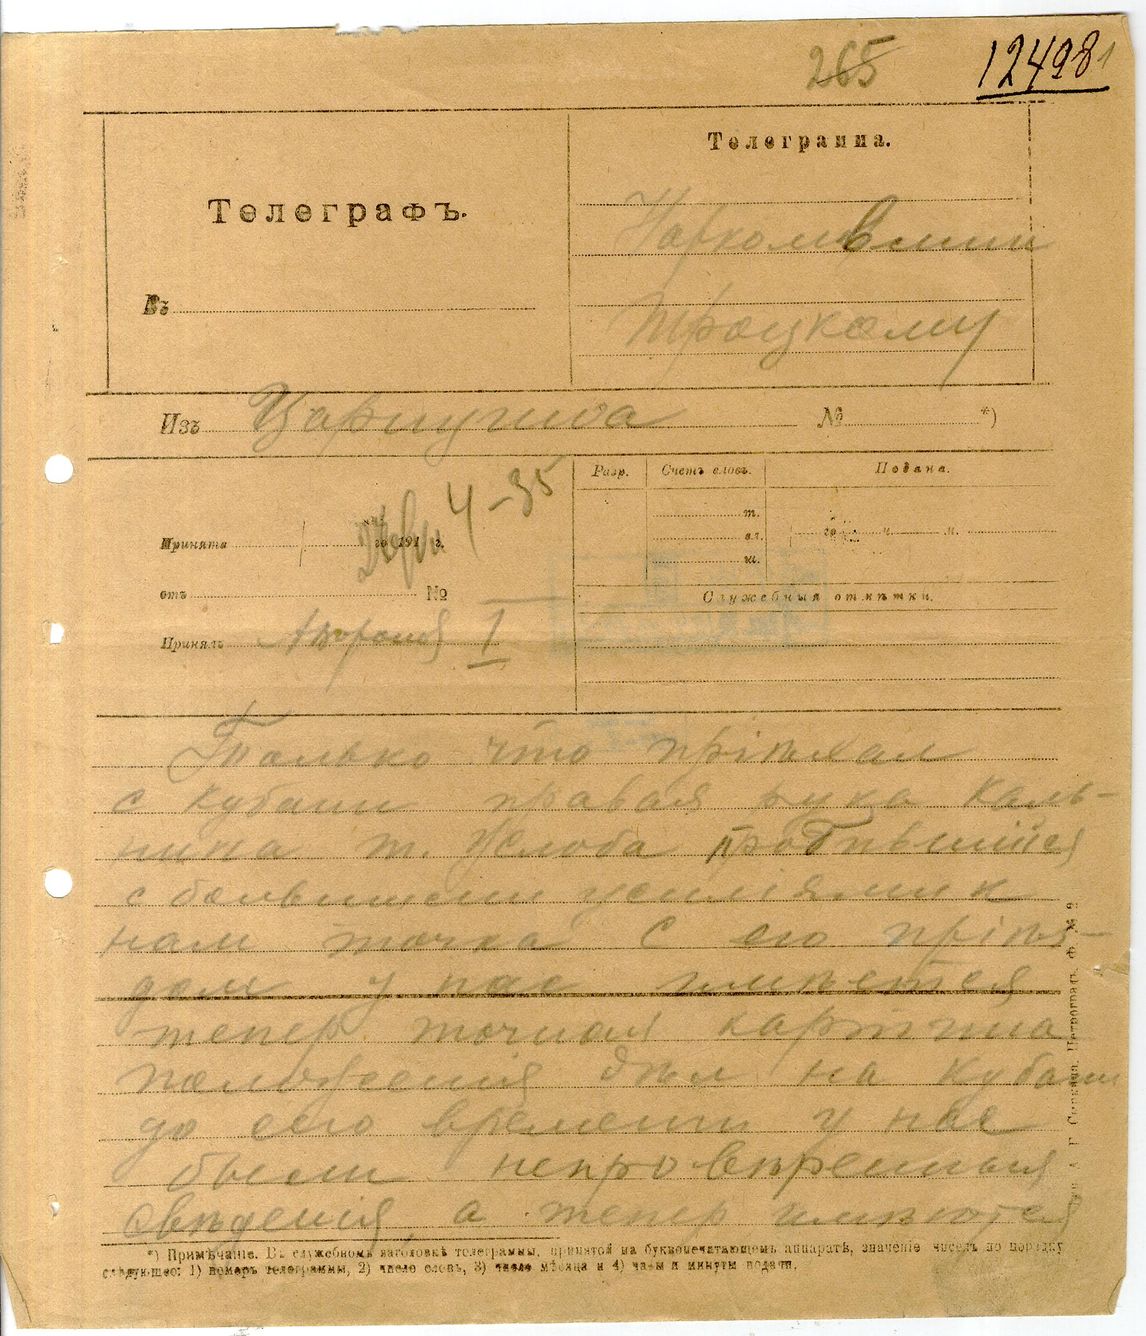 265 124981
Телеграмма.
Телеграфъ.
Наркомвоєнн
Въ
Троцкому
Изъ Царицина № *)
Разр. Счетъ словъ. Подана.
4-35
т.
Принята го 191 г.
вл. го ч. м.
ш.
отъ №
Служебныя отмѣтки.
Принялъ 1
Только что пріѣхал
с Кубани правая рука Каль-
нина т. Жлоба пробившійся
с большими усиліями к
нам точка С его пріѣз-
дом у нас имѣется
тепер точная картина
положенія дѣл на Кубани
до сего времени у нас
были непровѣренныя
свѣденія, а тепер имѣются
*) Примѣчаніе. Въ служебномъ заголовкѣ телеграммы, принятой на буквопечатающемъ аппаратѣ, значеніе чиселъ по порядку
слѣдующее: 1) номеръ телеграммы, 2) число словъ, 3) число мѣсяца и 4) часы и минуты подачи.
Петроградъ. Ф. № 2